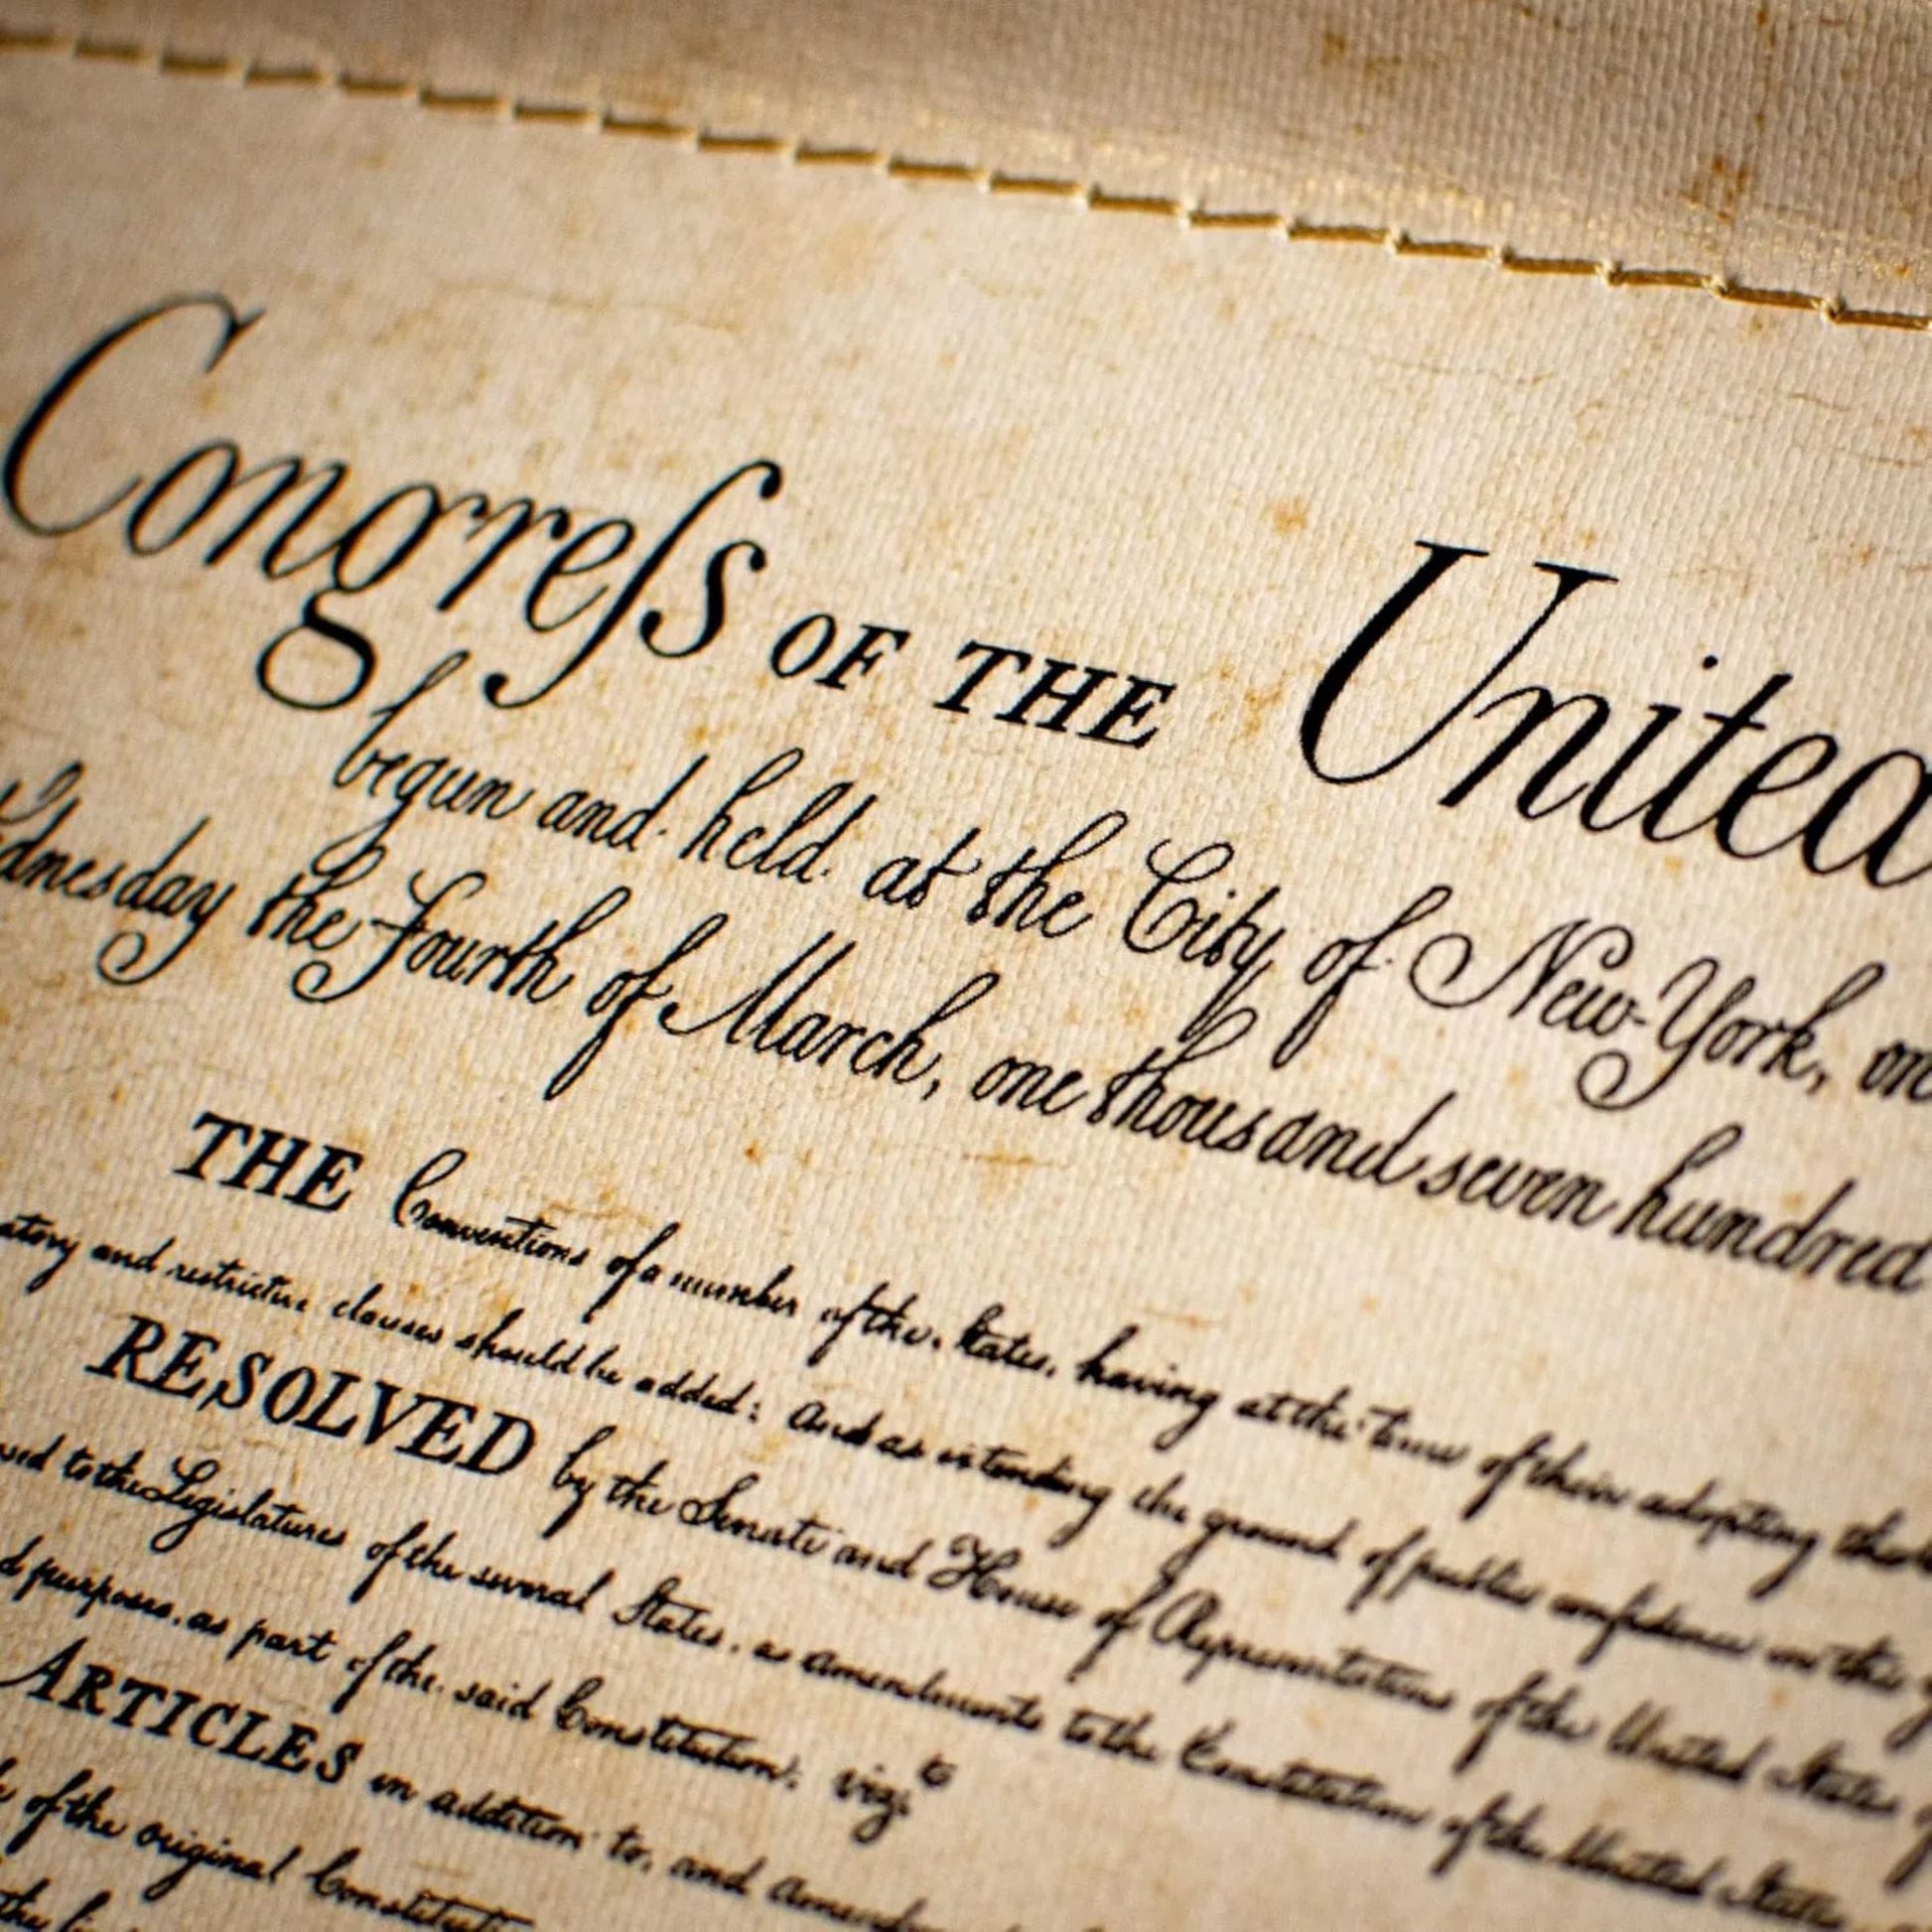 Congreſs OF THE United
begun and held at the City of New-York, on
Wednesday the Fourth of March, one thousand seven hundred
THE Conventions of a number of the States, having at the time of their adopting the
atory and restrictive clauses should be added: And as extending the ground of public confidence in the
RESOLVED by the Senate and House of Representatives of the United States
sed to the Legislatures of the several States, as amendments to the Constitution of the United States,
d purposes, as part of the said Constitution; vizt
ARTICLES in addition to, and Amend
of the original Constitut